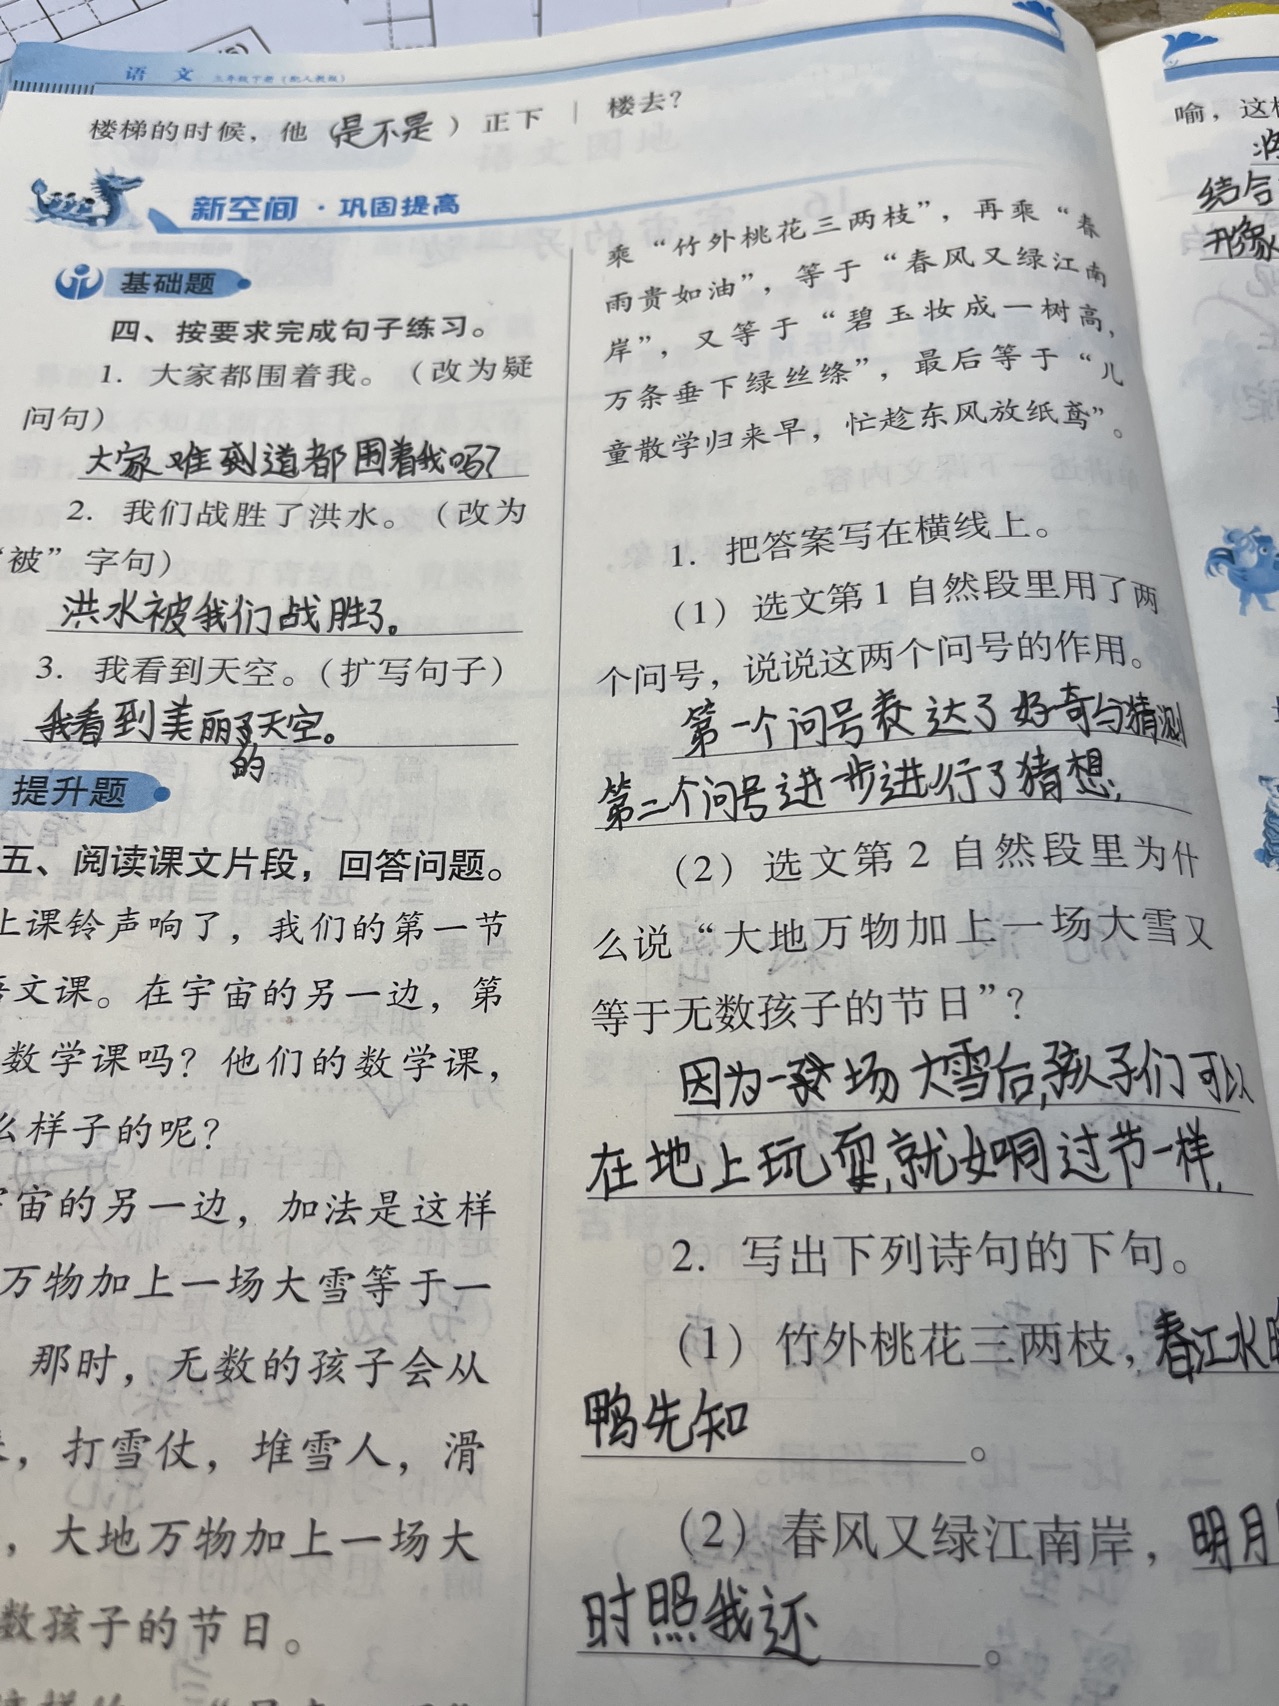 语 文 三年级下册（配人教版）
楼梯的时候，他（是不是）正下 | 楼去？
新空间·巩固提高
基础题
四、按要求完成句子练习。
1. 大家都围着我。（改为疑
问句）
大家难到道都围着我吗？
2. 我们战胜了洪水。（改为
“被”字句）
洪水被我们战胜了。
3. 我看到天空。（扩写句子）
我看到美丽的天空。
提升题
五、阅读课文片段，回答问题。
上课铃声响了，我们的第一节
语文课。在宇宙的另一边，第
数学课吗？他们的数学课，
么样子的呢？
宇宙的另一边，加法是这样
万物加上一场大雪等于一
那时，无数的孩子会从
，打雪仗，堆雪人，滑
，大地万物加上一场大
数孩子的节日。
乘“竹外桃花三两枝”，再乘“春
雨贵如油”，等于“春风又绿江南
岸”，又等于“碧玉妆成一树高，
万条垂下绿丝绦”，最后等于“儿
童散学归来早，忙趁东风放纸鸢”。
1. 把答案写在横线上。
（1）选文第1自然段里用了两
个问号，说说这两个问号的作用。
第一个问号表达了好奇与猜测
第二个问号进一步进行了猜想，
（2）选文第2自然段里为什
么说“大地万物加上一场大雪又
等于无数孩子的节日”？
因为一场大雪后，孩子们可以
在地上玩耍，就如同过节一样，
2. 写出下列诗句的下句。
（1）竹外桃花三两枝，春江水暖
鸭先知。
（2）春风又绿江南岸，明月
时照我还。
喻，这
结合
形象